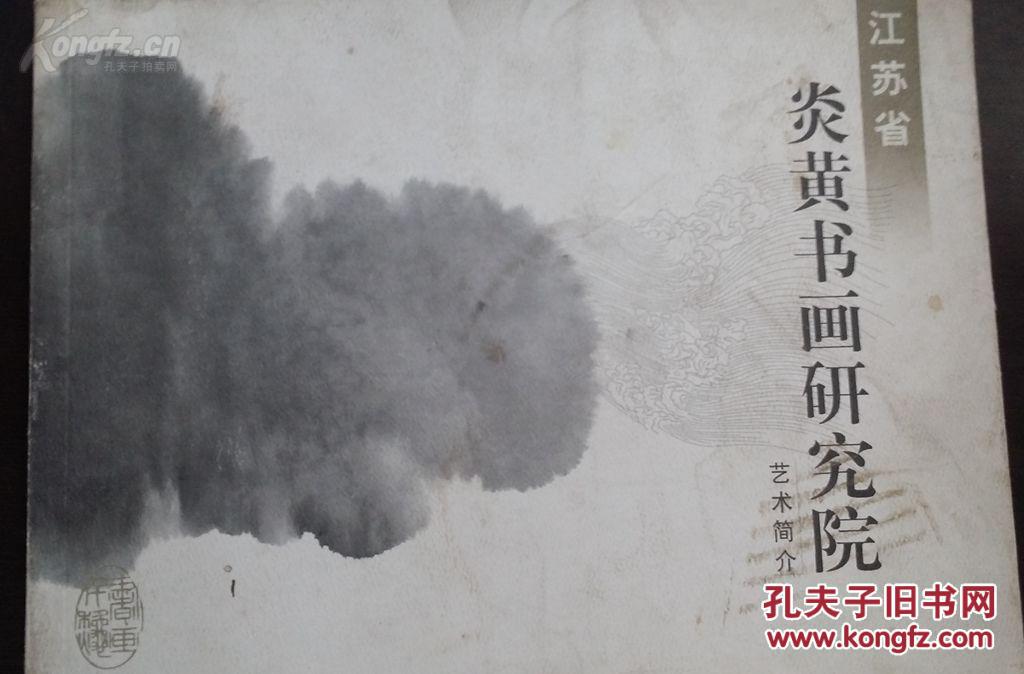 Kongfz.cn
孔夫子拍卖网
江苏省
炎黄书画研究院
艺术简介
孔夫子旧书网
www.kongfz.com